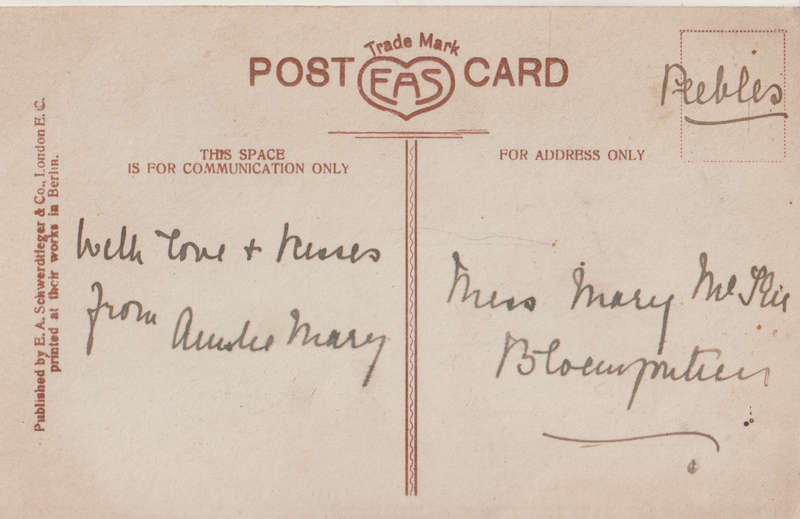 Trade Mark
POST EAS CARD
Peebles
THIS SPACE
IS FOR COMMUNICATION ONLY
FOR ADDRESS ONLY
With love + kisses
from Auntie Mary
Miss Mary
Bloemfontein
Published by E. A. Schwerdtfeger & Co., London E. C.
printed at their works in Berlin.